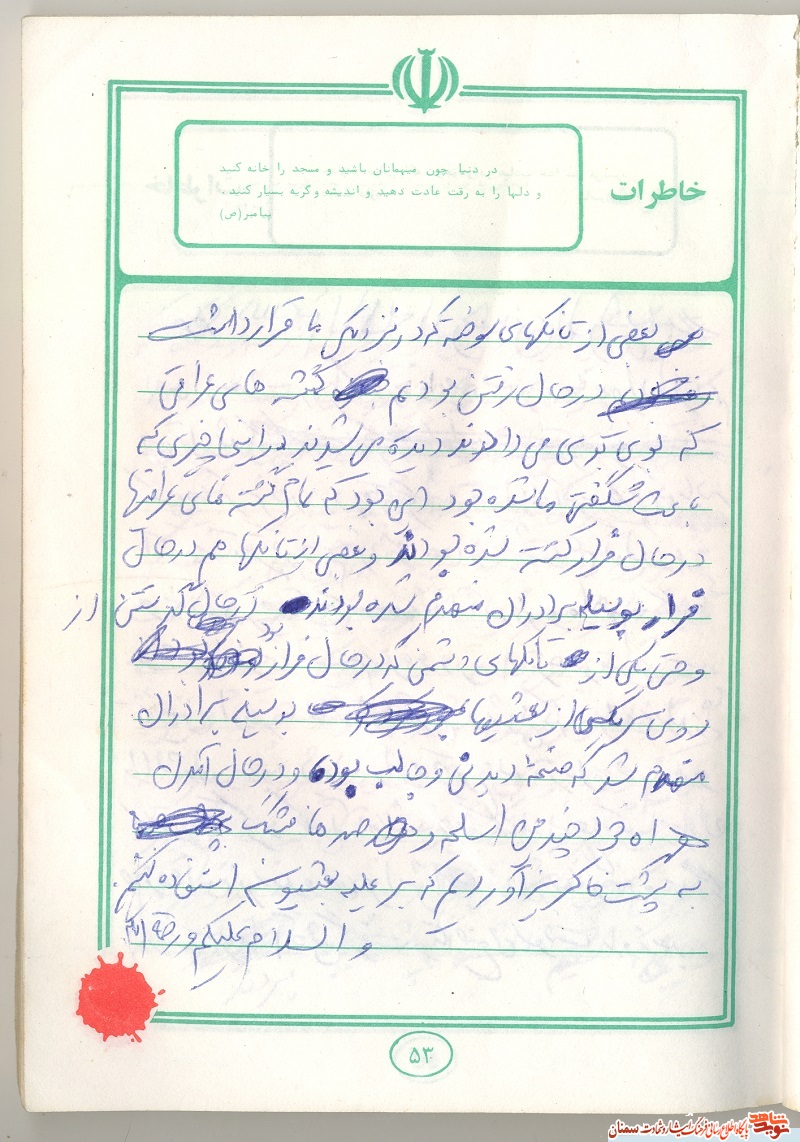 خاطرات
در دنیا چون میهمانان باشید و مسجد را خانه کنید
و دلها را به رقت عادت دهید و اندیشه وگریه بسیار کنید.
پیامبر(ص)
بعضی از تانکهای سوخته که در نزدیکی ما قرار داشت
در حال رفتن بودیم کشته های عراقی
که بوی بدی می دادند دیده می شدند در اینجا چیزی که
باعث شگفتی ما شده بود این بود که تمام کشته های عراقیها
در حال فرار کشته شده بودند و بعضی از تانکها هم در حال
فرار بوسیله برادران منهدم شده بودند در حال گذشتن از
و حتی یکی از تانکهای دشمن که در حال فرار بود
روی سر یکی از بعثیها بوسیله برادران
منهدم شد که صحنه دیدنی و جالب بود و در حال آمدن
همراه خود چندین اسلحه و صدها فشنگ
به پشت خاکریز آوردیم که بر علیه بعثیون استفاده کنیم.
والسلام علیکم ورحمة الله
۵۳
نوید شاهد
پایگاه اطلاع رسانی فرهنگ ایثار و شهادت سمنان